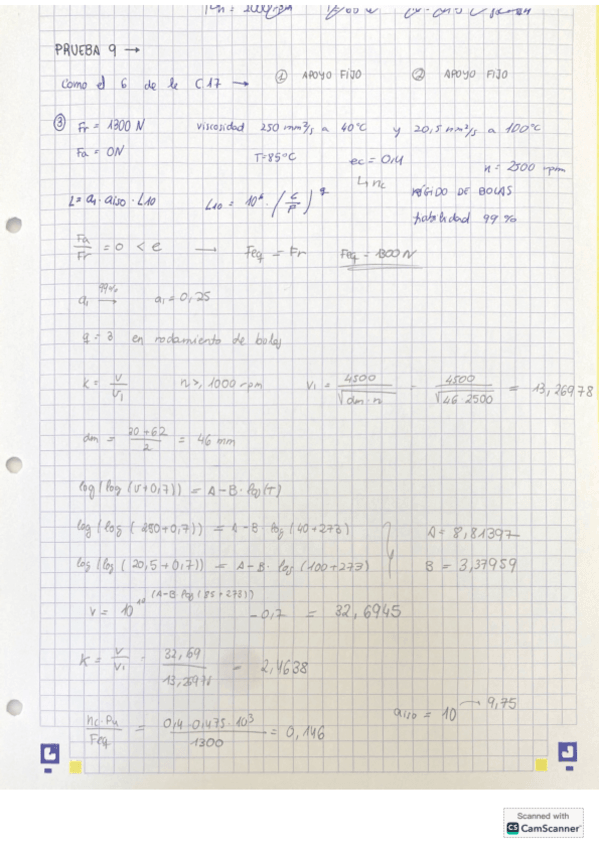 PRUEBA 9 →
Como el 6 de la C17 → ① APOYO FIJO ② APOYO FIJO
③ Fr = 1300 N viscosidad 250 mm²/s a 40°C y 20,5 mm²/s a 100°C
Fa = 0N T=85°C ec = 0,4 n = 2500 rpm
↳ nc RÍGIDO DE BOLAS
L = a1 · aiso · L10 L10 = 10⁶ · (C/P)^q fiabilidad 99%
Fa/Fr = 0 < e → Feq = Fr Feq = 1300 N
a1 99%→ a1 = 0,25
q = 3 en rodamiento de bolas
K = V/V1 n ≥ 1000 rpm V1 = 4500/√dm·n = 4500/√46·2500 = 13,26978
dm = 30+62/2 = 46 mm
log(log(V+0,7)) = A-B·log(T)
log(log(250+0,7)) = A-B·log(40+273) A = 8,81397
log(log(20,5+0,7)) = A-B·log(100+273) B = 3,37959
V = 10^10^(A-B log(85+273)) -0,7 = 32,6945
K = V/V1 = 32,69/13,26978 = 2,4638
nc·Pu/Feq = 0,4·0,475·10³/1300 = 0,146 aiso = 10 → 9,75
Scanned with
CS CamScanner